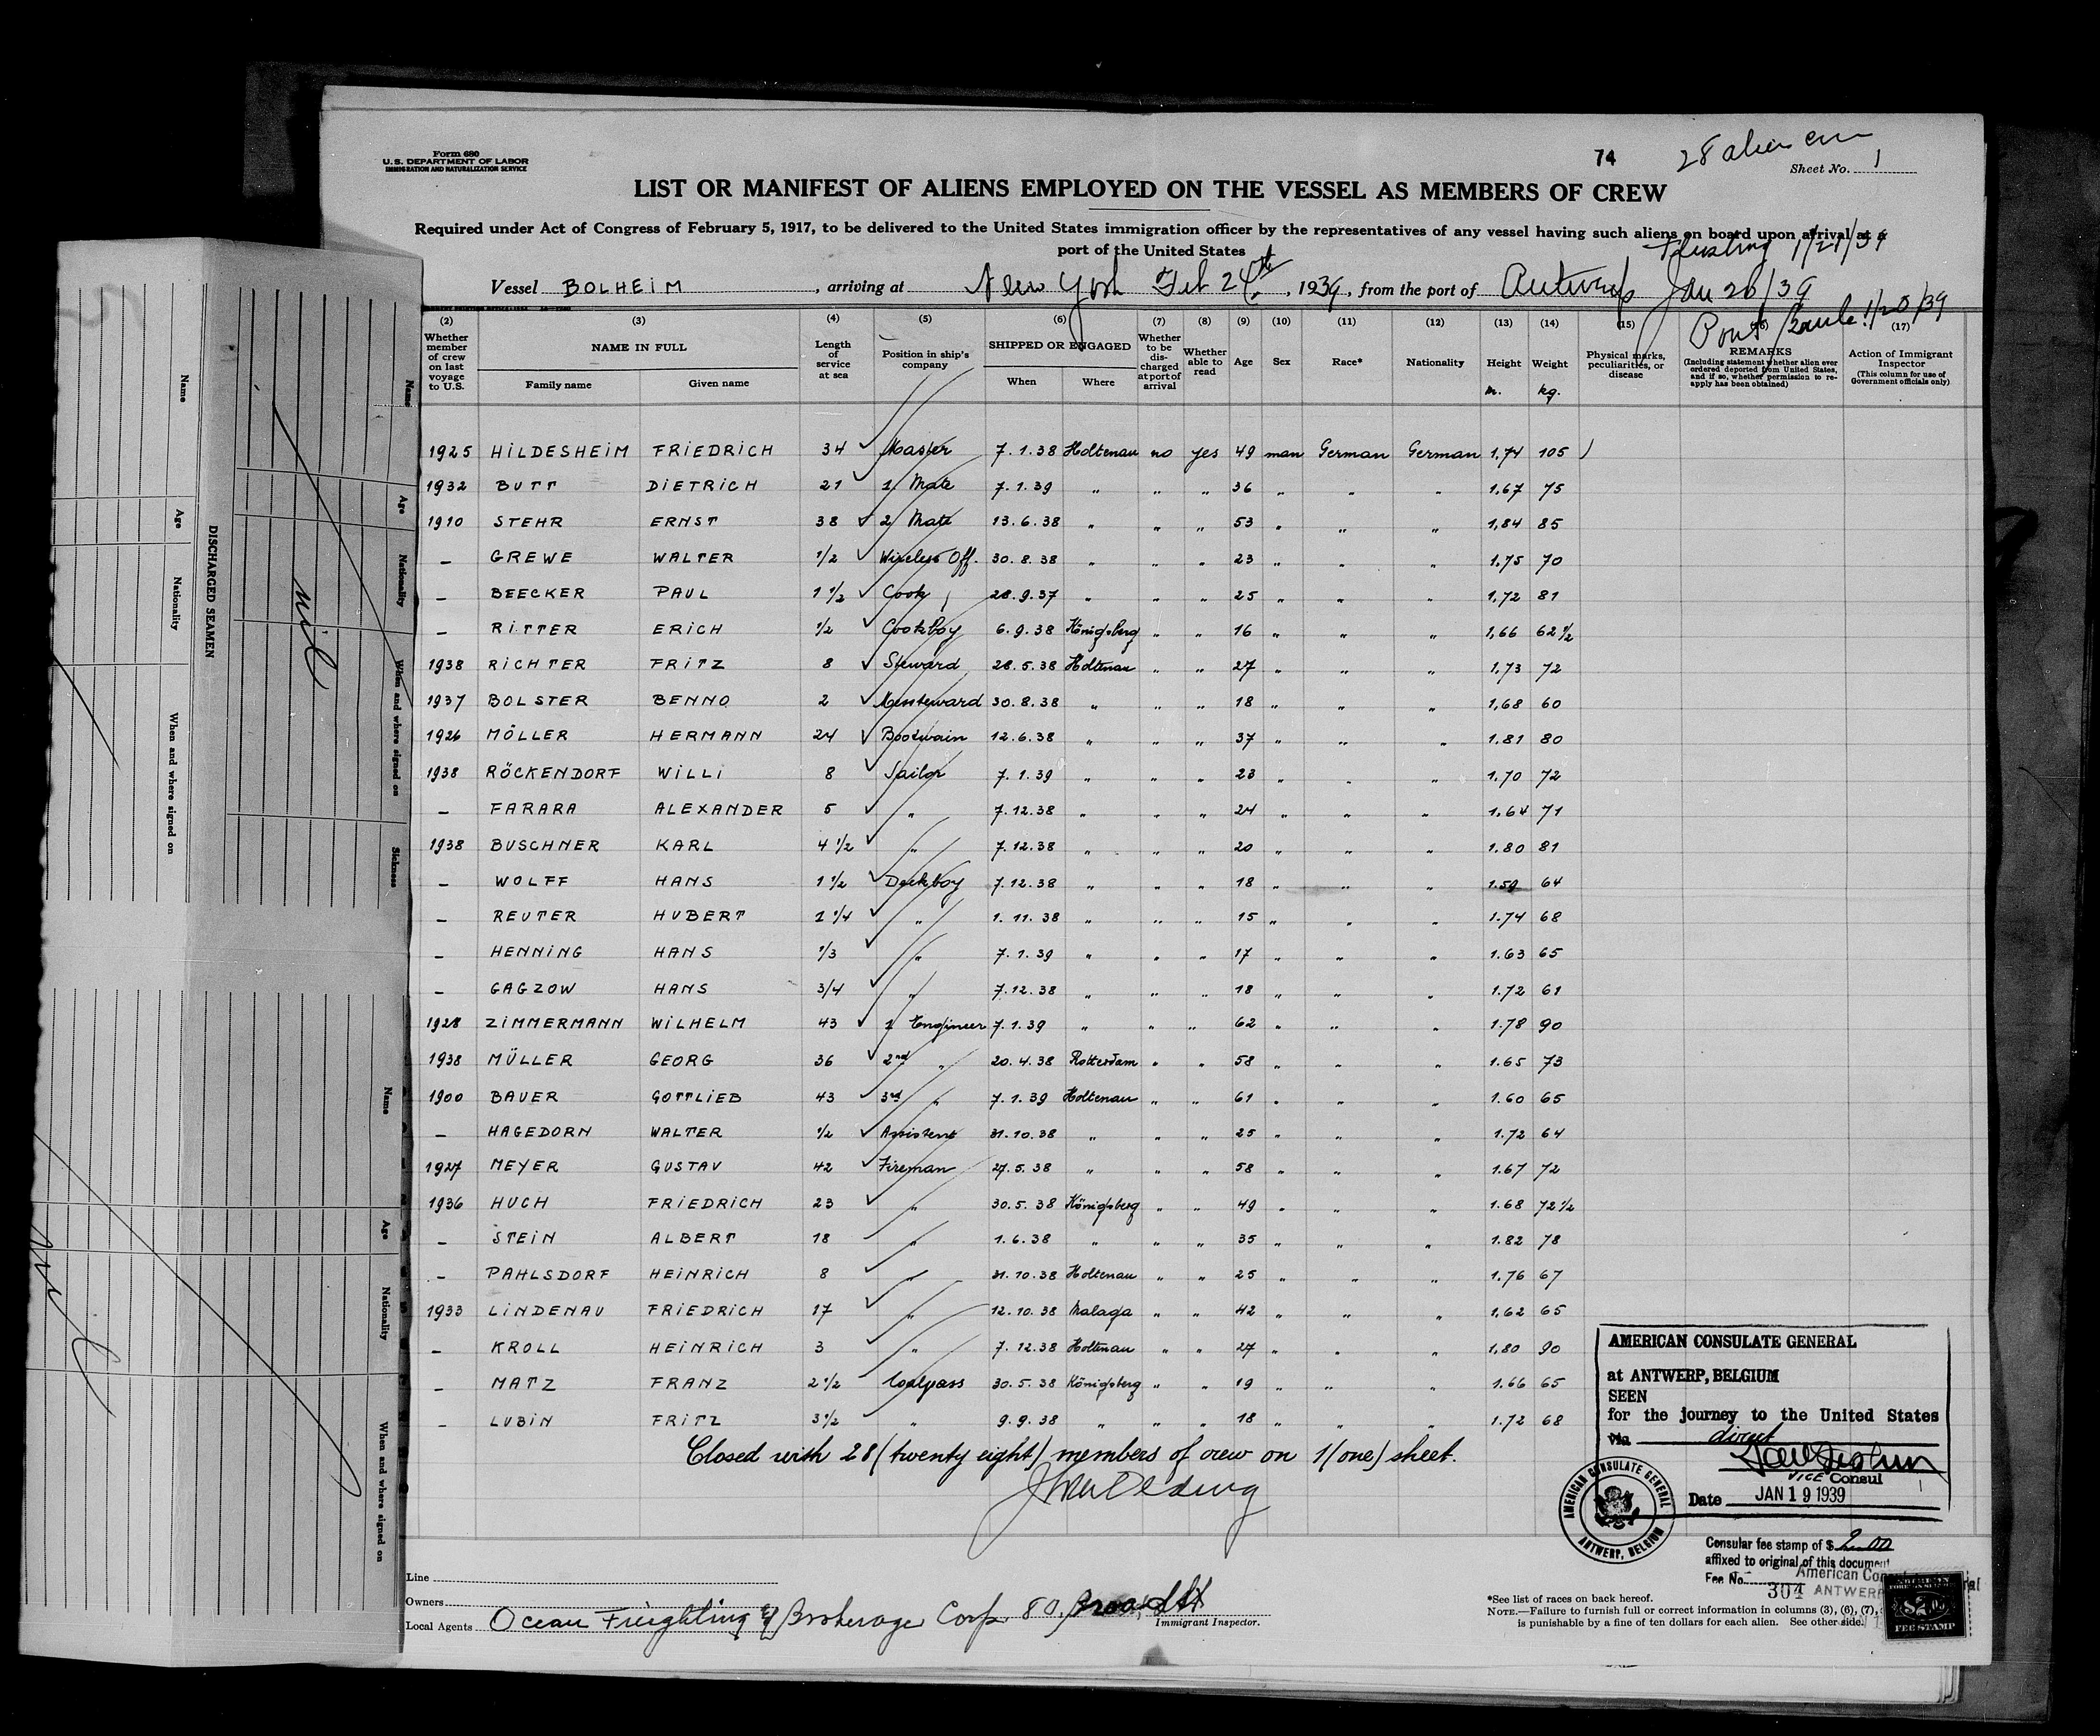 Form 680
U.S. DEPARTMENT OF LABOR
IMMIGRATION AND NATURALIZATION SERVICE
74
28 alien crew
Sheet No. 1
LIST OR MANIFEST OF ALIENS EMPLOYED ON THE VESSEL AS MEMBERS OF CREW
Required under Act of Congress of February 5, 1917, to be delivered to the United States immigration officer by the representatives of any vessel having such aliens on board upon arrival at a
port of the United States
Flushing 1/21/39
Vessel BOLHEIM , arriving at New York Feb 24th , 1939, from the port of Antwerp Jan 20/39
1/20/39
(2) (3) (4) (5) (6) (7) (8) (9) (10) (11) (12) (13) (14) (15) (16) (17)
Whether member of crew on last voyage to U.S. NAME IN FULL Family name Given name Length of service at sea Position in ship's company SHIPPED OR ENGAGED When Where Whether to be discharged at port of arrival Whether able to read Age Sex Race* Nationality Height Weight Physical marks, peculiarities, or disease REMARKS (Including statement whether alien ever ordered deported from United States, and if so, whether permission to reapply has been obtained) Action of Immigrant Inspector (This column for use of Government officials only)
m. kg.
1925 HILDESHEIM FRIEDRICH 34 Master 7.1.38 Holtenau no yes 49 man German German 1,74 105
1932 BUTT DIETRICH 21 1. Mate 7.1.39 " " " 36 " " " 1,67 75
1910 STEHR ERNST 38 2. Mate 13.6.38 " " " 53 " " " 1,84 85
— GREWE WALTER 1/2 Wireless Off. 30.8.38 " " " 23 " " " 1,75 70
— BEECKER PAUL 1 1/2 Cook 28.9.37 " " " 25 " " " 1,72 81
— RITTER ERICH 1/2 Cooksboy 6.9.38 Königsberg " " 16 " " " 1,66 62 1/2
1938 RICHTER FRITZ 8 Steward 28.5.38 Holtenau " " 27 " " " 1,73 72
1937 BOLSTER BENNO 2 Messteward 30.8.38 " " " 18 " " " 1,68 60
1926 MÖLLER HERMANN 24 Bootwain 12.6.38 " " " 37 " " " 1.81 80
1938 RÖCKENDORF WILLI 8 Sailor 7.1.39 " " " 23 " " " 1,70 72
— FARARA ALEXANDER 5 " 7.12.38 " " " 24 " " " 1,64 71
1938 BUSCHNER KARL 4 1/2 " 7.12.38 " " " 20 " " " 1.80 81
— WOLFF HANS 1 1/2 Deckboy 7.12.38 " " " 18 " " " 1.59 64
— REUTER HUBERT 1 1/4 " 1.11.38 " " " 15 " " " 1.74 68
— HENNING HANS 1/3 " 7.1.39 " " " 17 " " " 1.63 65
— GAGZOW HANS 3/4 " 7.12.38 " " " 18 " " " 1.72 61
1928 ZIMMERMANN WILHELM 43 1. Engineer 7.1.39 " " " 62 " " " 1.78 90
1938 MÜLLER GEORG 36 2nd " 20.4.38 Rotterdam " " 58 " " " 1.65 73
1900 BAUER GOTTLIEB 43 3rd " 7.1.39 Holtenau " " 61 " " " 1.60 65
— HAGEDORN WALTER 1/2 Assistent 31.10.38 " " " 25 " " " 1.72 64
1927 MEYER GUSTAV 42 Fireman 27.5.38 " " " 58 " " " 1.67 72
1936 HUCH FRIEDRICH 23 " 30.5.38 Königsberg " " 49 " " " 1.68 72 1/2
— STEIN ALBERT 18 " 1.6.38 " " " 35 " " " 1.82 78
— PAHLSDORF HEINRICH 8 " 31.10.38 Holtenau " " 25 " " " 1,76 67
1933 LINDENAU FRIEDRICH 17 " 12.10.38 Malaga " " 42 " " " 1,62 65
— KROLL HEINRICH 3 " 7.12.38 Holtenau " " 27 " " " 1,80 90
— MATZ FRANZ 2 1/2 Coalpass 30.5.38 Königsberg " " 19 " " " 1.66 65
— LUBIN FRITZ 3 1/2 " 9.9.38 " " " 18 " " " 1.72 68
Closed with 28 (twenty eight) members of crew on 1 (one) sheet.
AMERICAN CONSULATE GENERAL
at ANTWERP, BELGIUM
SEEN
for the journey to the United States
via direct
VICE Consul
Date JAN 19 1939
AMERICAN CONSULATE GENERAL ANTWERP, BELGIUM
Consular fee stamp of $ 2.00
affixed to original of this document
Fee No. 304
American
ANTWERP
$2.00
FEE STAMP
Line
Owners
Local Agents Ocean Freighting & Brokerage Corp 80 Broad St
Immigrant Inspector.
*See list of races on back hereof.
NOTE.—Failure to furnish full or correct information in columns (3), (6), (7),
is punishable by a fine of ten dollars for each alien. See other side.
DISCHARGED SEAMEN
Name Age Nationality When and where signed on
Name Age Nationality When and where signed on Sickness
nil
Name Age Nationality When and where signed on
nil